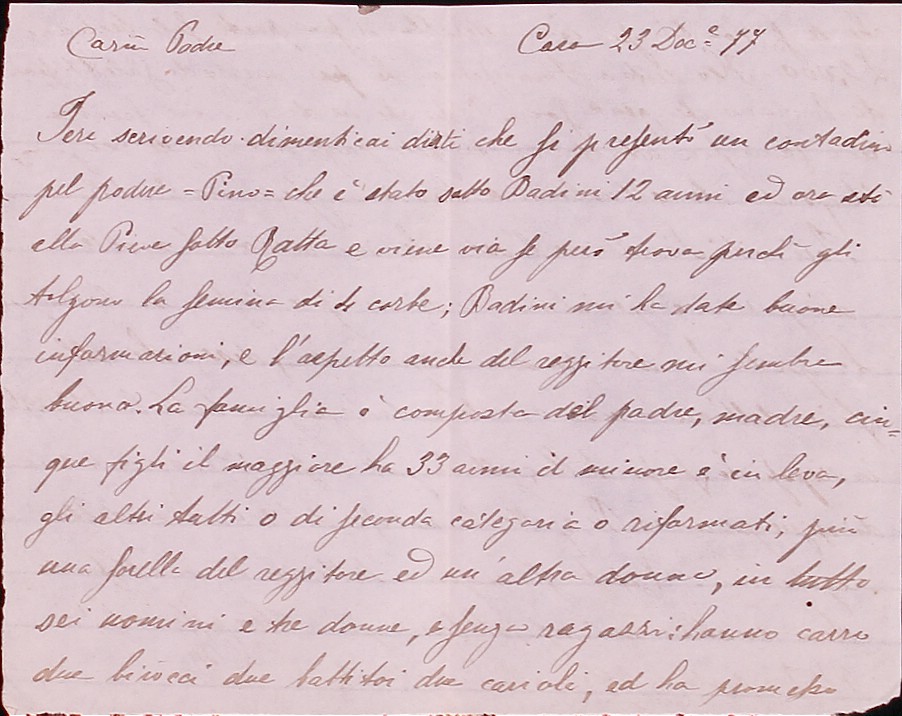 Carm Padre Casa 23 Dec.e 77
Jere scrivendo dimenticai dirti che si presentò un contadino
pel podere = Pino = che è stato sotto Badini 12 anni ed ora sta
alla Pieve sotto Ratta e viene via se però trova perchè gli
tolgono la semina di 4 corbe; Badini mi ha date buone
informazioni, e l'aspetto anche del reggitore mi sembra
buono. La famiglia è composta del padre, madre, cin=
que figli il maggiore ha 33 anni il minore è in leva,
gli altri tutti o di seconda categoria o riformati, più
una sorella del reggitore ed un'altra donna, in tutto
sei uomini e tre donne, e senza ragazzi: hanno carro
due birocci due battitoi due carioli, ed ha promesso